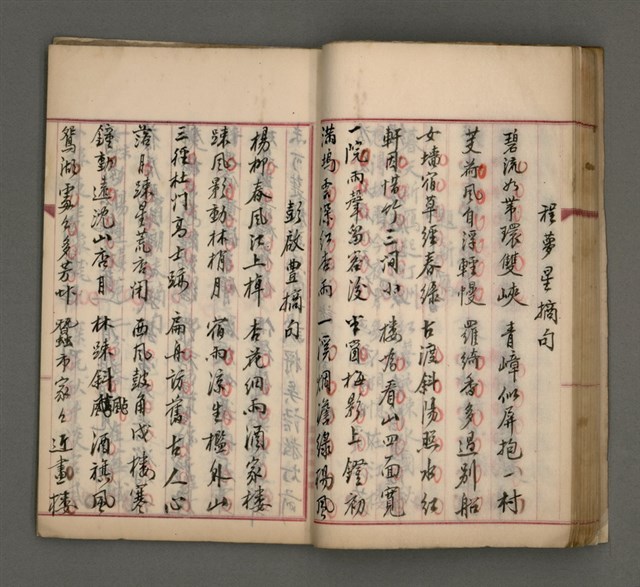 程夢星摘句
碧流如帶環雙峽　青嶂似屏抱一村
芰荷風自浮輕幔　羅綺香多過別船
女墻宿草經春綠　古渡斜陽照水紅
軒因惜竹三間小　樓為看山四面寬
一院雨聲當客後　半窗梅影上鐙初
滿塢雲深紅杏雨　一溪烟澹綠楊風
彭啟豐摘句
楊柳春風江上棹　杏花細雨酒家樓
踈風影動林梢月　宿雨涼生檻外山
三徑杜門高士躅　扁舟訪舊古人心
落月踈星荒店閉　西風鼓角戍樓寒
鐘動遠沈山店月　林踈斜颺酒旗風
鴛湖處處多芳草　蠶市家家近畫樓